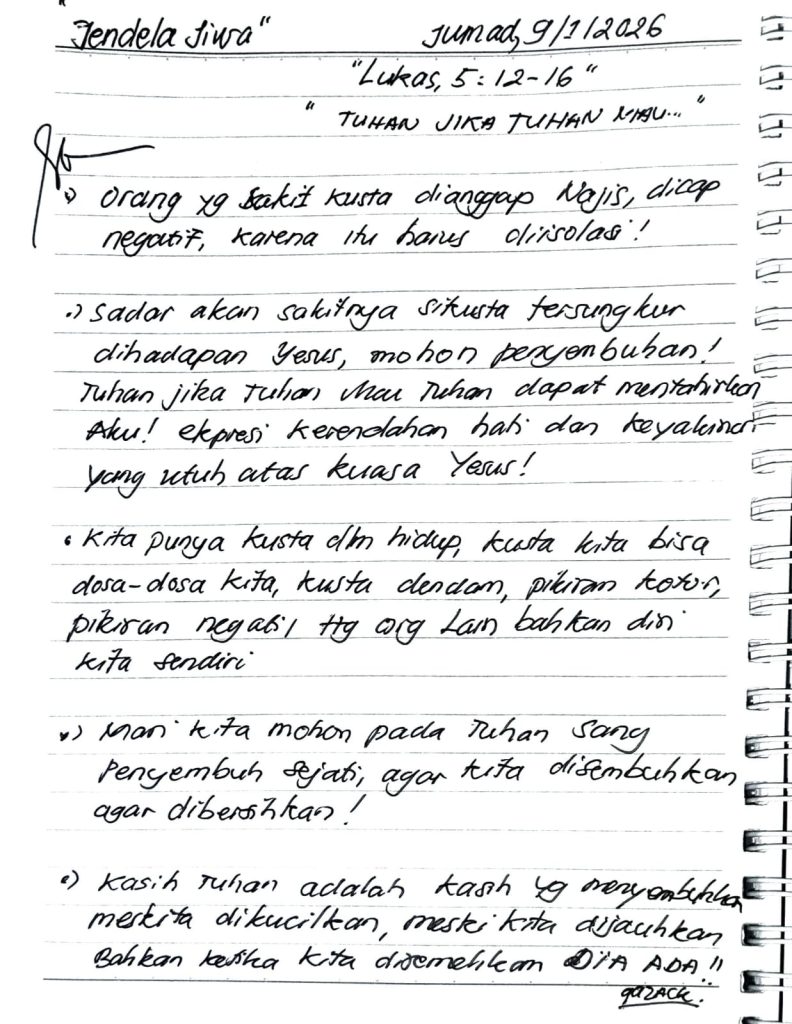 "Jendela Jiwa" Jumad, 9/1/2026
"Lukas, 5: 12-16"
"TUHAN JIKA TUHAN MAU..."
Orang yg sakit kusta dianggap Najis, dicap
negatif, karena itu harus diisolasi!
.) Sadar akan sakitnya sikusta tersungkur
dihadapan Yesus, mohon penyembuhan!
Tuhan jika Tuhan Mau Tuhan dapat mentahirkan
Aku! ekpresi kerendahan hati dan keyakinan
yang utuh atas kuasa Yesus!
• Kita punya kusta dlm hidup, kusta kita bisa
dosa-dosa kita, kusta dendam, pikiran kotor,
pikiran negatif ttg org Lain bahkan diri
kita sendiri
.) Mari kita mohon pada Tuhan Sang
Penyembuh sejati, agar kita disembuhkan
agar dibersihkan!
.) Kasih Tuhan adalah kasih yg menyembuhkan
meskita dikucilkan, meski kita dijauhkan
Bahkan ketika kita diremehkan DIA ADA!!